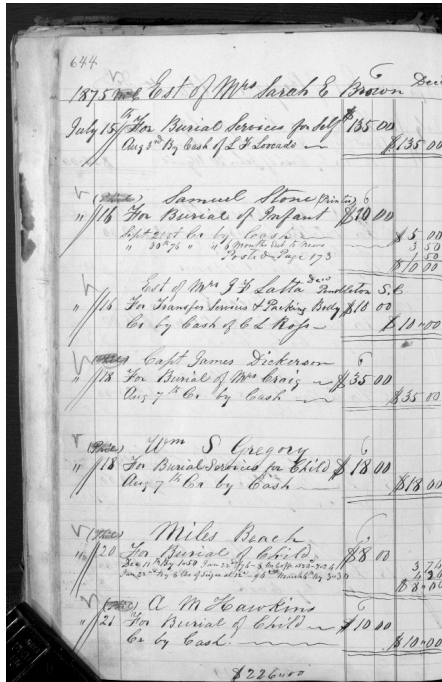 644
1875 Est of Mrs Sarah E Brown Decd
July 15th For Burial Services for Self $135.00
Aug 3rd By Cash of L F $135.00
Samuel Stone (Printer)
" 16 For Burial of Infant $10.00
Sept 21st Cr by Cash $5.00
" 30th 75 " " 6 months Sub to News 3 50
Page 173 1 50
$10 00
Est of Mrs J F Latta Decd Pendleton S.C
" 16 For Transfer Services & Packing Body $10 00
Cr by Cash of C L Ross $10"00
Capt James Dickerson
" 18 For Burial of Mrs Craig $35 00
Aug 7th Cr by Cash $35 00
Wm S Gregory
" 18 For Burial Services for Child $18 00
Aug 7th Cr by Cash $18.00
Miles Beach
" 20 For Burial of Child $8 00
3 74
4 26
$8"00
A M Hawkins
" 21 For Burial of Child $10.00
Cr by Cash. $10"00
$226"00